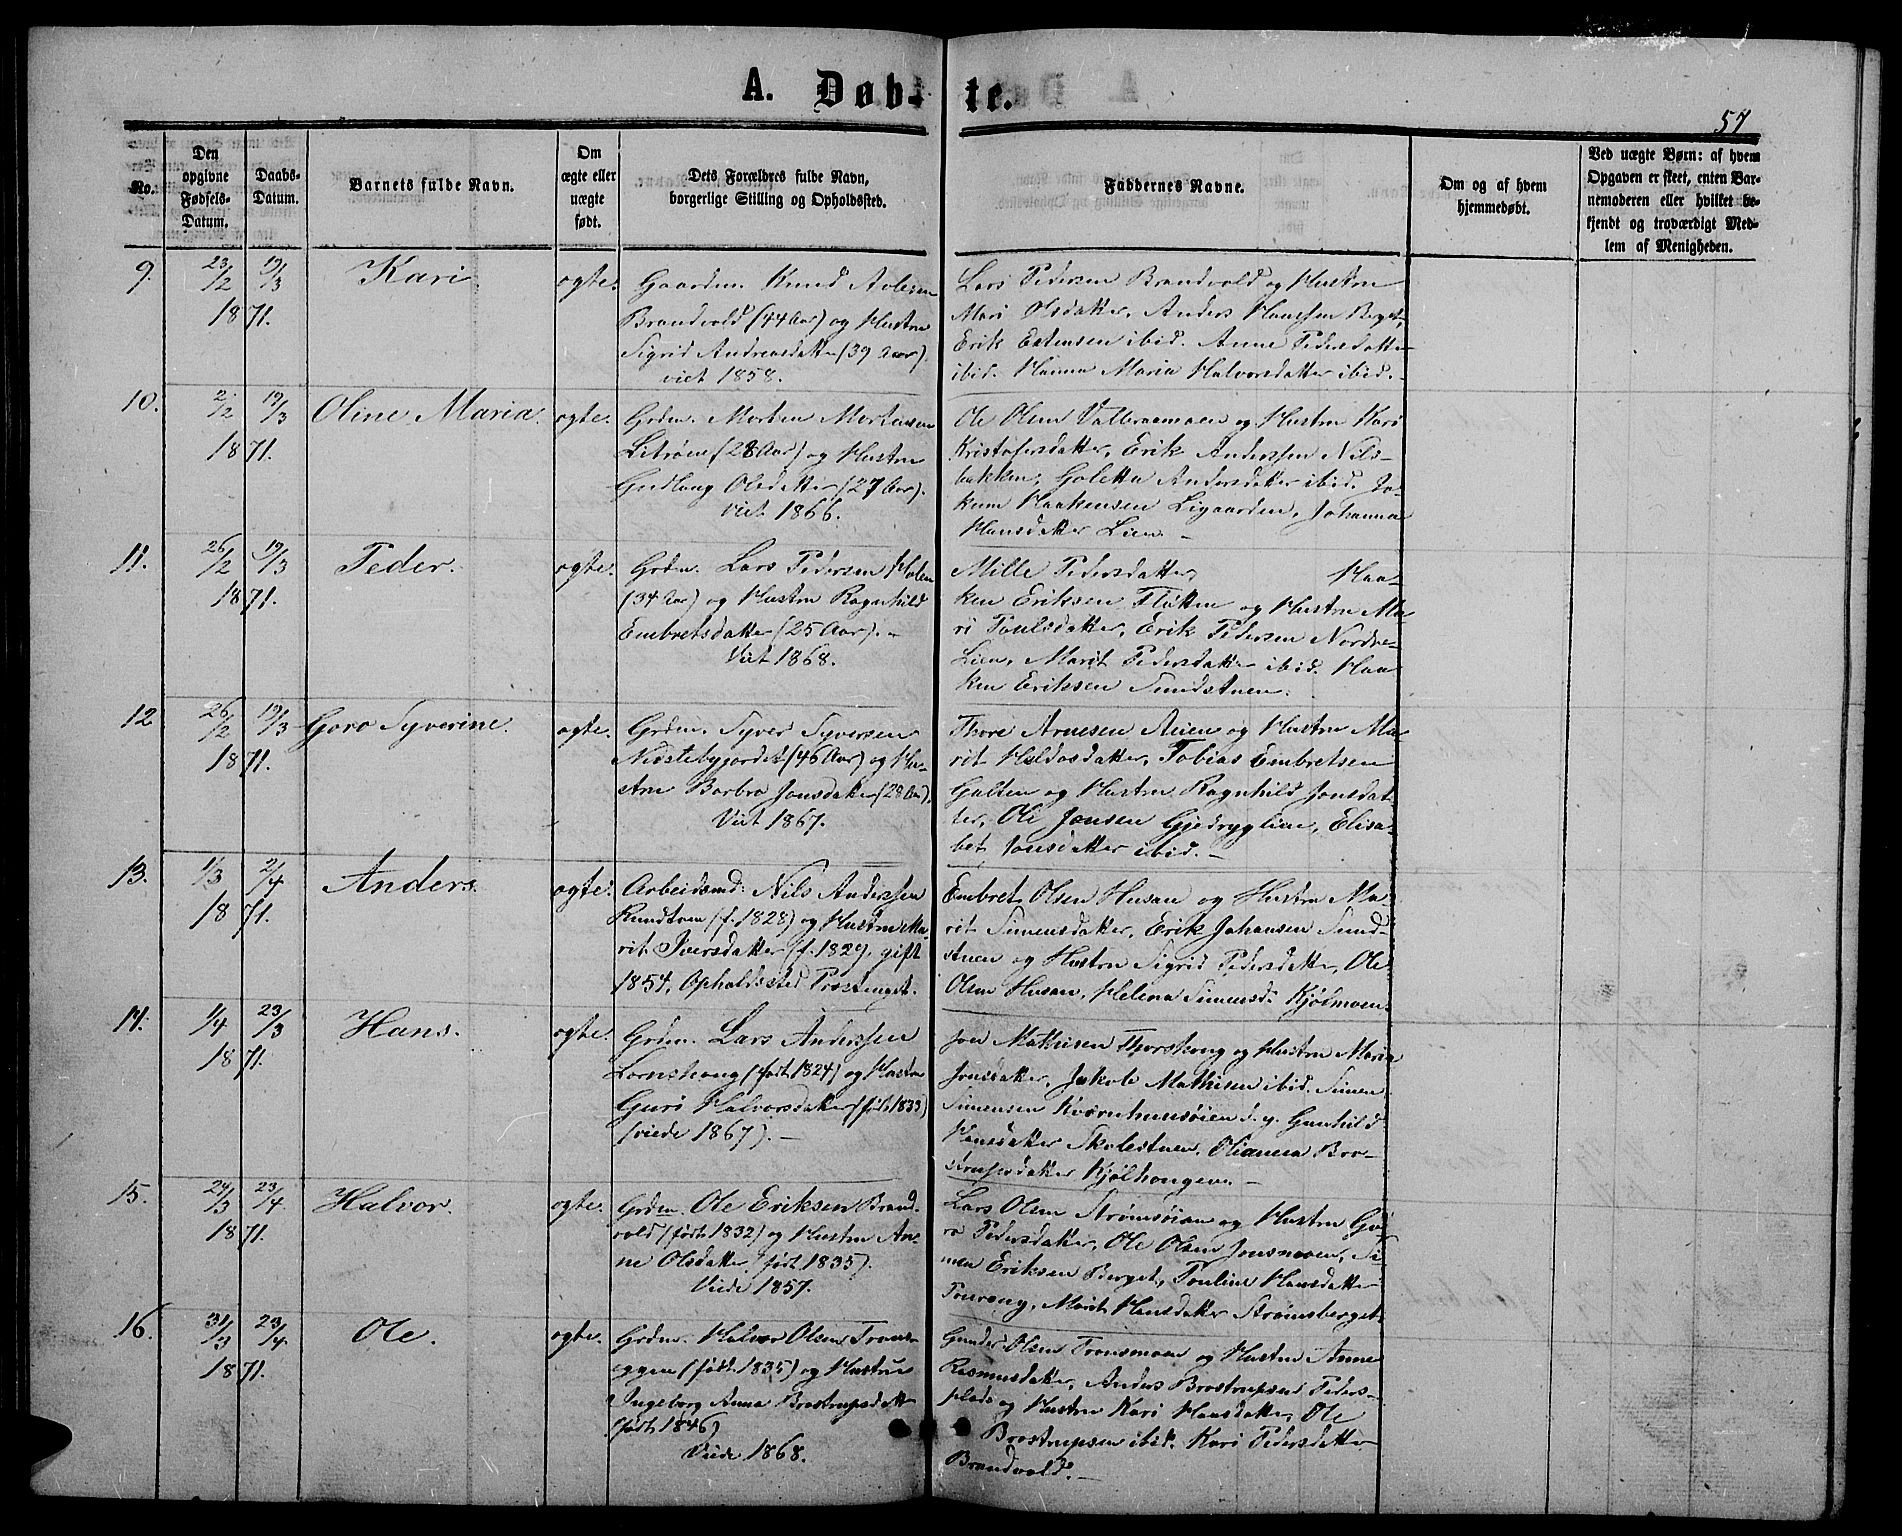 A. Døb-te.
57
No.
Den opgivne Fødsels-Datum.
Daabs-Datum.
Barnets fulde Navn.
Om ægte eller uægte født.
Dets Forældres fulde Navn, borgerlige Stilling og Opholdssted.
Faddernes Navne.
Om og af hvem hjemmedøbt.
Ved uægte Børn: af hvem Opgaven er skeet, enten Barnemoderen eller hvilket bekjendt og troværdigt Medlem af Menigheden.
9. 23/2 19/3 1871. Kari ogte.
Gaardm. Knud
Brandvold (44 Aar) og Hustru
Sigrid Andreasdatter (39 Aar).
viet 1858.
Lars Pedersen Brandvold og Hustru
Mari Olsdatter, Anders Hanssen Berget,
Erik Estensen ibid. Anne Pedersdatter
ibid. Hanna Maria Halvorsdatter ibid.
10. 2/2 19/3 1871. Oline Maria. ogte.
Grdm. Morten Mortensen
(28 Aar) og Hustru
Gudlaug Olsdatter (27 Aar).
Viet 1866.
Ole Olsen og Hustru Kari
Kristofersdatter, Erik Anderssen Nils-
bakken, Goletta Andersdatter ibid. Jo-
kum Haakensen Ligaarden, Johanna
Hansdatter Lien. -
11. 26/2 19/3 1871. Peder. ogte.
Grdm. Lars Pedersen Holen
(34 Aar) og Hustru Ragnhild
Embretsdatter (25 Aar). -
Viet 1868.
Mille Pedersdatter, Haa-
ken Eriksen Fløtten og Hustru Ma-
ri Poulsdatter, Erik Pedersen Nordre-
Lien, Marit Pedersdatter ibid. Haa-
ken Eriksen Sundstuen.
12 26/2 19/3 1871. Goro Syverine. ogte.
Grdm. Syver Syversen
Nedstebygjordet (46 Aar) og Hu-
stru Barbro Jonsdatter (28 Aar),
Viet 1867.
Thore Arnesen Aaen og Hustru Ma-
rit Haldosdatter, Tobias Embretsen
Galten og Hustru Ragnhild Jonsdat-
ter, Ole Jonsen Gjedryglien, Elisa-
bet Jonsdatter ibid. -
13. 1/3 2/4 1871. Anders. ogte.
Arbeidsmd: Nils Anderssen
Rundtom (f. 1828) og Hustru Ma-
rit Iversdatter (f. 1829, gift
1854, Opholdssted Præstenget.
Embret Olsen Husan og Hustru Ma-
rit Simensdatter, Erik Johansen Sund-
stuen og Hustru Sigrid Pedersdatter, Ole
Olsen Husan, Helena Simensd. Kjølmoen.
14. 1/4 23/3 1871. Hans. ogte.
Grdm. Lars Anderssen
(født 1824) og Hustru
Guri Halvorsdatter (født 1833)
(viede 1867). -
Jon Mathisen og Hustru Maria
Jonsdatter, Jakob Mathisen ibid. Simen
Simensen d. y. Gunhild
Hansdatter Skolestuen, Olianna Bro-
strupsdatter Kjølhaugen. -
15. 24/3 23/4 1871. Halvor. ogte.
Grdm. Ole Eriksen Brand-
vold (født 1832) og Hustru An-
ne Olsdatter, født 1835).
Viede 1857.
Lars Olsen Strømsøian og Hustru Gu-
ro Pedersdatter, Ole Olsen Jonsmoen, Si-
men Eriksen Berget, Pouline Hansdatter
Marit Hansdatter Strømsberget.
16. 31/3 23/4 1871. Ole. ogte.
Grdm. Halvor Olsen Trons-
eggen (født 1835) og Hustru
Ingeborg Anna Brostrupsdatter
(født 1846)
Viede 1868.
Gunder Olsen Tronsmoen og Hustru Anne
Rasmusdatter, Anders Brostrupsen Peders-
plads og Hustru Kari Hansdatter, Ole
Brostrupsen ibid. Kari Pedersdatter
Brandvold. -